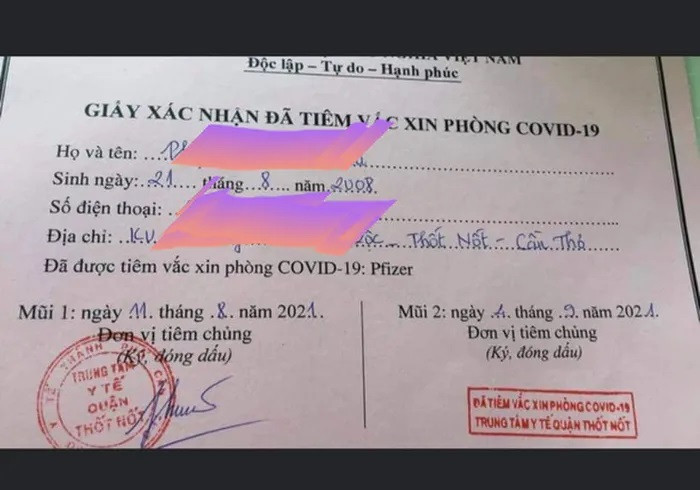 NGHĨA VIỆT NAM
Độc lập – Tự do – Hạnh phúc
GIẤY XÁC NHẬN ĐÃ TIÊM VẮC XIN PHÒNG COVID-19
Họ và tên:
Sinh ngày: 21 tháng 8 năm 2008
Số điện thoại:
Địa chỉ: KV Lộc – Thốt Nốt – Cần Thơ
Đã được tiêm vắc xin phòng COVID-19: Pfizer
Mũi 1: ngày 11. tháng .8. năm 2021.
Đơn vị tiêm chủng
(Ký, đóng dấu)
TRUNG TÂM
Y TẾ
QUẬN
THỐT NỐT
Mũi 2: ngày 4. tháng .9. năm 2021.
Đơn vị tiêm chủng
(Ký, đóng dấu)
ĐÃ TIÊM VẮC XIN PHÒNG COVID-19
TRUNG TÂM Y TẾ QUẬN THỐT NỐT